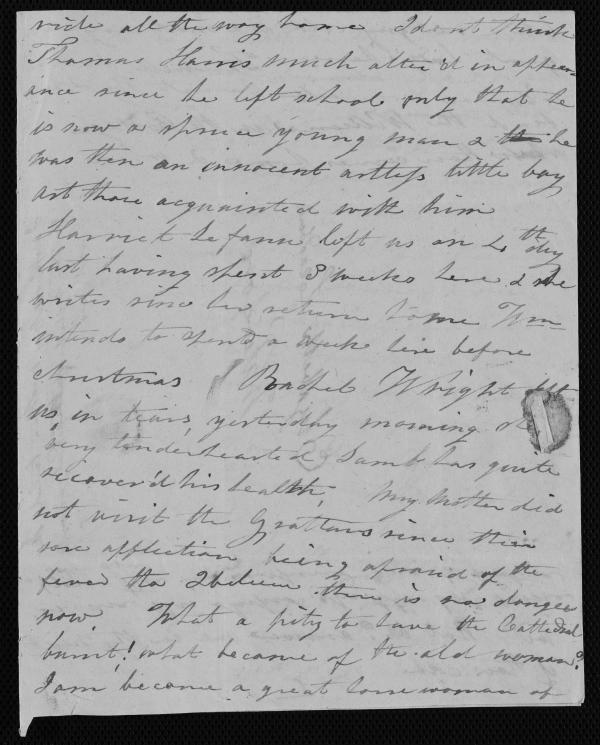 ride all the way home I dont think
Thomas Harris much alter'd in appear-
ance since he left school only that he
is now a spruce young man & he
was then an innocent artless little boy
art thou acquainted with him
Harriet Lefanu left us on 4th day
last having spent 3 weeks here & she
writes since her return home Wm
intends to spend a week here before
christmas Rachel Wright left
us in tears yesterday morning
very tenderhearted Samb has quite
recover'd his health, My Mother did
not visit the Grattans since their
sore affliction being afraid of the
fever tho I believe there is no danger
now What a pity to have the Cathedral
burnt! what became of the old woman?
I am become a great horsewoman of